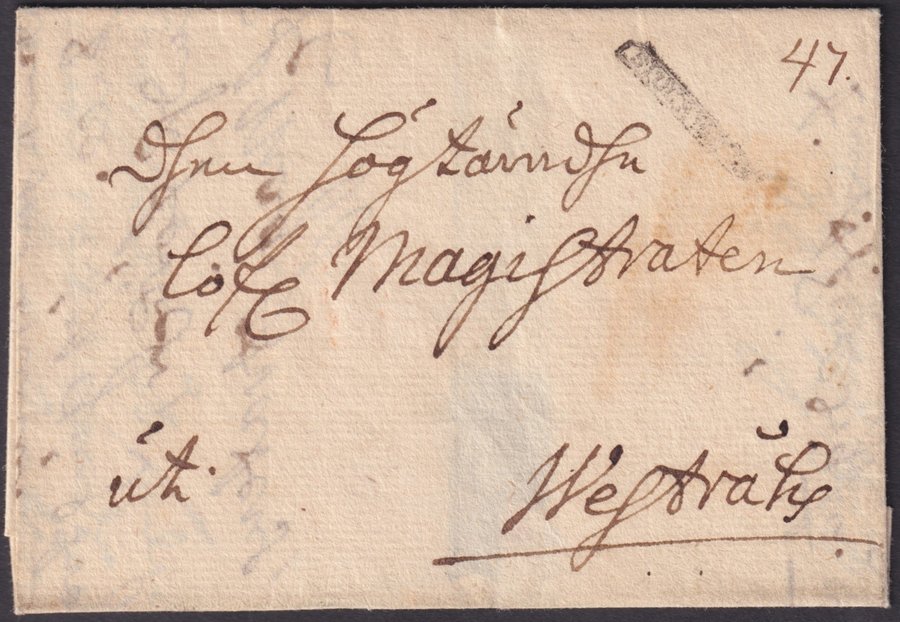 47.
Dhen Högtärndhe
Lofl Magistraten
uti
Westeråhs